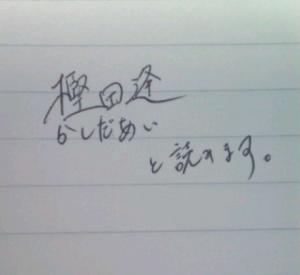 樫田逢
かしだあい
と読めます。